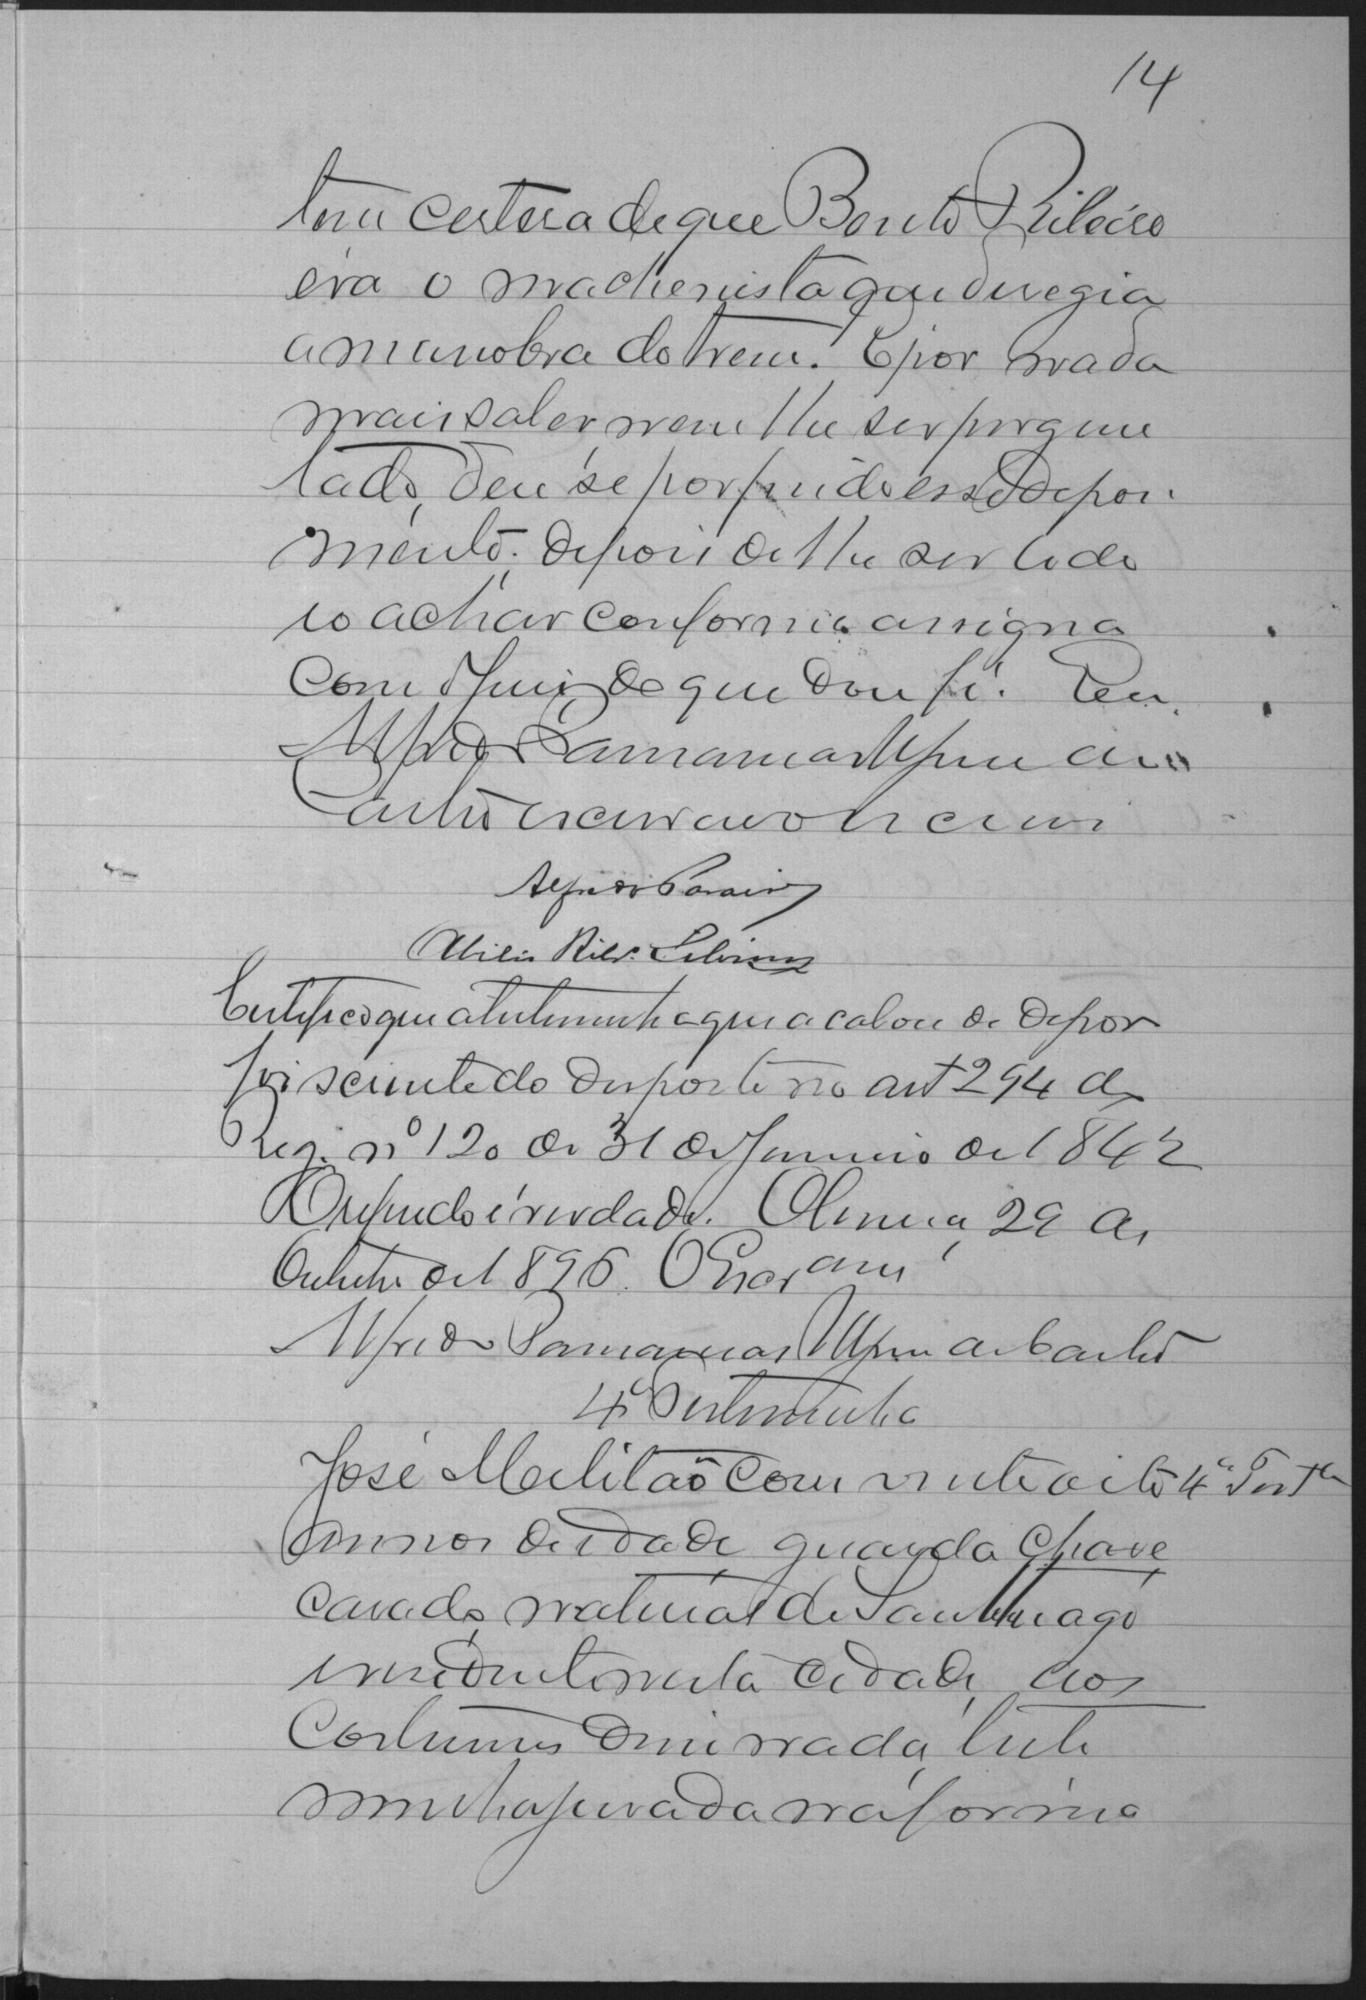 14
tem certesa de que Bento Ribeiro
era o machenista que deregia
a manobra do trem. E por nada
mais saber nem lhe ser pergun
tado, deu-se por findo esse depoi-
mento. depois de lhe ser lido
e o achar conforme assigna
com o Juiz de que dou fé. Eu,
Alfredo
Castro escrivão o escrevi
Alfredo
Certifico que a testemunha que acabou de depor
foi sciente do disposto no art 294 do
Reg. nº 120 de 31 de Janeiro de 1842
O referido é verdade. 29 de
Outubro de 1896. O Escrivam
Alfredo de Castro
4ª Testemunha
José Melitão com vinte oito 4ª Testª
annos de idade guarda chave
casado, natural de Santhiago
residente nesta cidade, aos
costumes disse nada, teste
munha jurada na forma